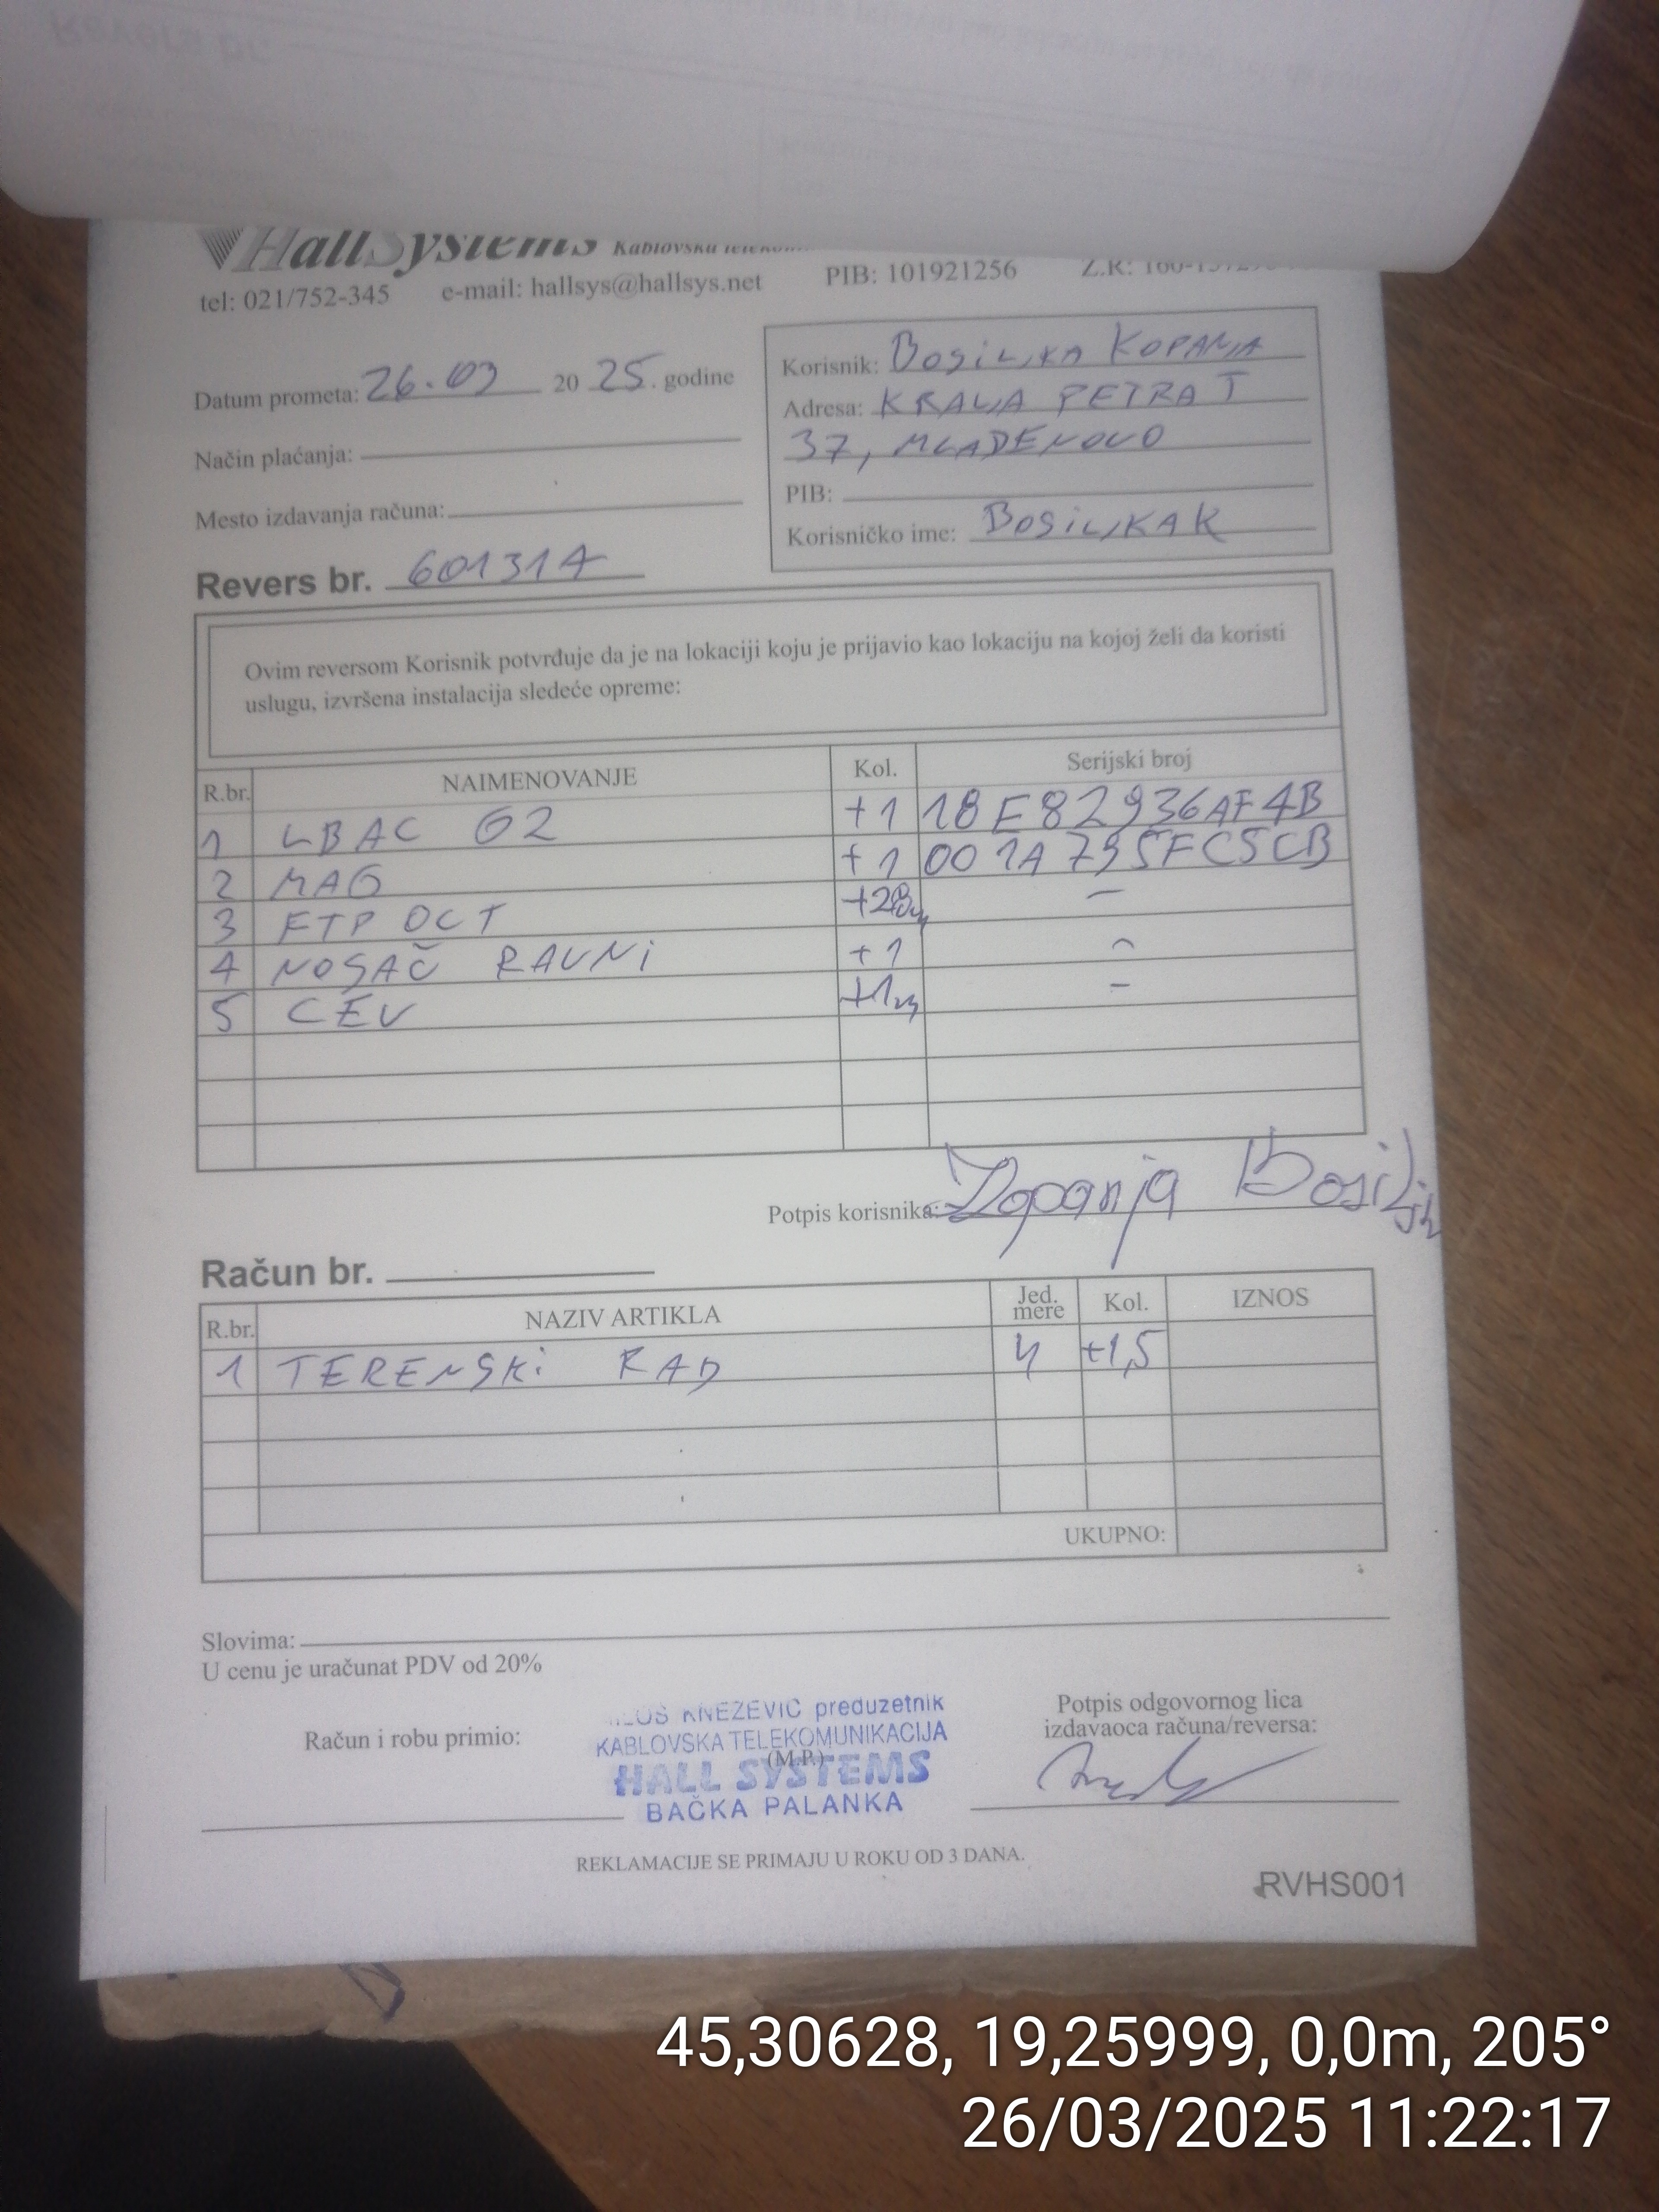 HallSystems Kablovska
tel: 021/752-345 e-mail: hallsys@hallsys.net PIB: 101921256 Z.R: 160-
Datum prometa: 26.03 2025. godine
Način plaćanja:
Mesto izdavanja računa:
Korisnik: BOSILJKA KOPANJA
Adresa: KRALJA PETRA I
37, MLADENOVO
PIB:
Korisničko ime: BOSILJKAK
Revers br. 601317
Ovim reversom Korisnik potvrđuje da je na lokaciji koju je prijavio kao lokaciju na kojoj želi da koristi
uslugu, izvršena instalacija sledeće opreme:
R.br. NAIMENOVANJE Kol. Serijski broj
1 LBAC G2 +1 18E82936AF4B
2 MAG +1 001A795FC5CB
3 FTP OCT +28m –
4 NOSAČ RAVNI +1 –
5 CEV +1m –
Potpis korisnika: Kopanja Bosiljk
Račun br.
R.br. NAZIV ARTIKLA Jed. mere Kol. IZNOS
1 TERENSKI RAD h +1,5
UKUPNO:
Slovima:
U cenu je uračunat PDV od 20%
Račun i robu primio:
KNEZEVIC preduzetnik
KABLOVSKA TELEKOMUNIKACIJA
(M.P.)
HALL SYSTEMS
BAČKA PALANKA
Potpis odgovornog lica
izdavaoca računa/reversa:
REKLAMACIJE SE PRIMAJU U ROKU OD 3 DANA.
RVHS001
45,30628, 19,25999, 0,0m, 205°
26/03/2025 11:22:17